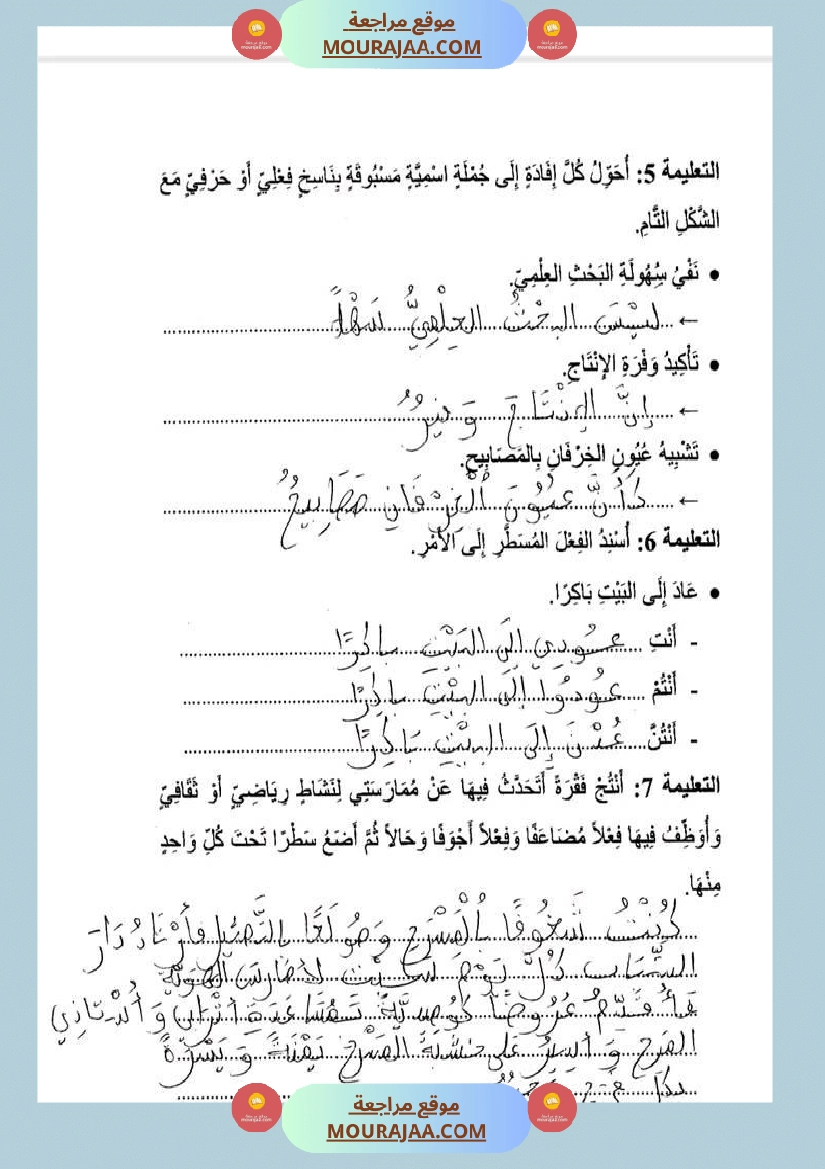 موقع مراجعة
MOURAJAA.COM
التعليمة 5: أُحَوِّلُ كُلَّ إِفَادَةٍ إِلَى جُمْلَةٍ اسْمِيَّةٍ مَسْبُوقَةٍ بِنَاسِخٍ فِعْلِيٍّ أَوْ حَرْفِيٍّ مَعَ
الشَّكْلِ التَّامِ.
• نَفْيُ سُهُولَةِ البَحْثِ العِلْمِيِّ.
← لَيْسَ البَحْثُ العِلْمِيُّ سَهْلًا
• تَأْكِيدُ وَفْرَةِ الإِنْتَاجِ.
← إِنَّ الإِنْتَاجَ وَفِيرٌ
• تَشْبِيهُ عُيُونِ الخِرْفَانِ بِالمَصَابِيحِ.
← كَأَنَّ عُيُونَ الْخِرْفَانِ مَصَابِيحُ
التعليمة 6: أُسْنِدُ الفِعْلَ المُسَطَّرَ إِلَى الأَمْرِ.
• عَادَ إِلَى البَيْتِ بَاكِرًا.
- أَنْتِ عُودِي إِلَى البَيْتِ بَاكِرًا
- أَنْتُمْ عُودُوا إِلَى البَيْتِ بَاكِرًا
- أَنْتُنَّ عُدْنَ إِلَى البَيْتِ بَاكِرًا
التعليمة 7: أُنْتِجُ فَقْرَةً أَتَحَدَّثُ فِيهَا عَنْ مُمَارَسَتِي لِنَشَاطٍ رِيَاضِيٍّ أَوْ ثَقَافِيٍّ
وَأُوَظِّفُ فِيهَا فِعْلاً مُضَاعَفًا وَفِعْلاً أَجْوَفًا وَحَالاً ثُمَّ أَضَعُ سَطْرًا تَحْتَ كُلِّ وَاحِدٍ
مِنْهَا.
كُنْتُ شَغُوفًا بِالْمَسْرَحِ وَمُولَعًا بِالتَّمْثِيلِ فَأَرْتَادُ دَارَ
الشَّبَابِ كُلَّ يَوْمِ سَبْتٍ لِأُمَارِسَ
فَأُقَدِّمُ عُرُوضًا أَتْرَابِي وَ
الفَرَحِ وَأَسِيرُ عَلَى خَشَبَةِ المَسْرَحِ يَمْنَةً وَيَسْرَةً
موقع مراجعة
MOURAJAA.COM